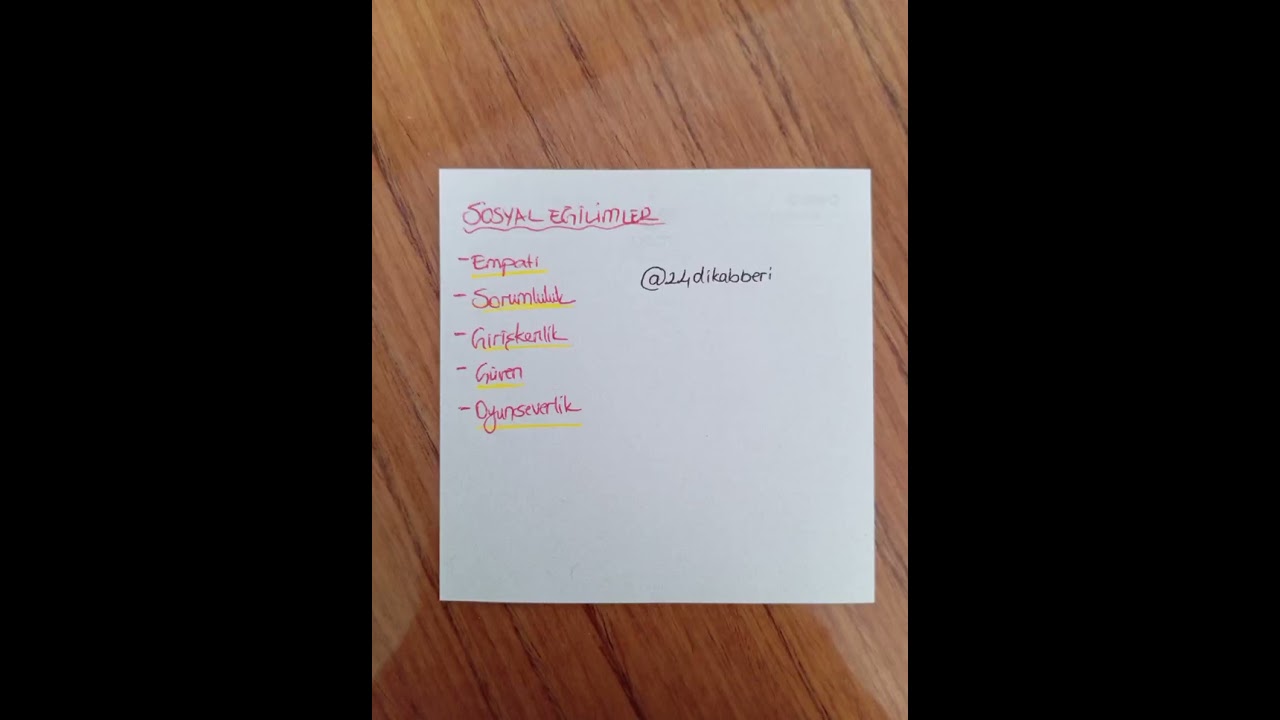 SOSYAL EĞİLİMLER
- Empati
@24dikabberi
- Sorumluluk
- Girişkenlik
- Güven
- Oyunseverlik